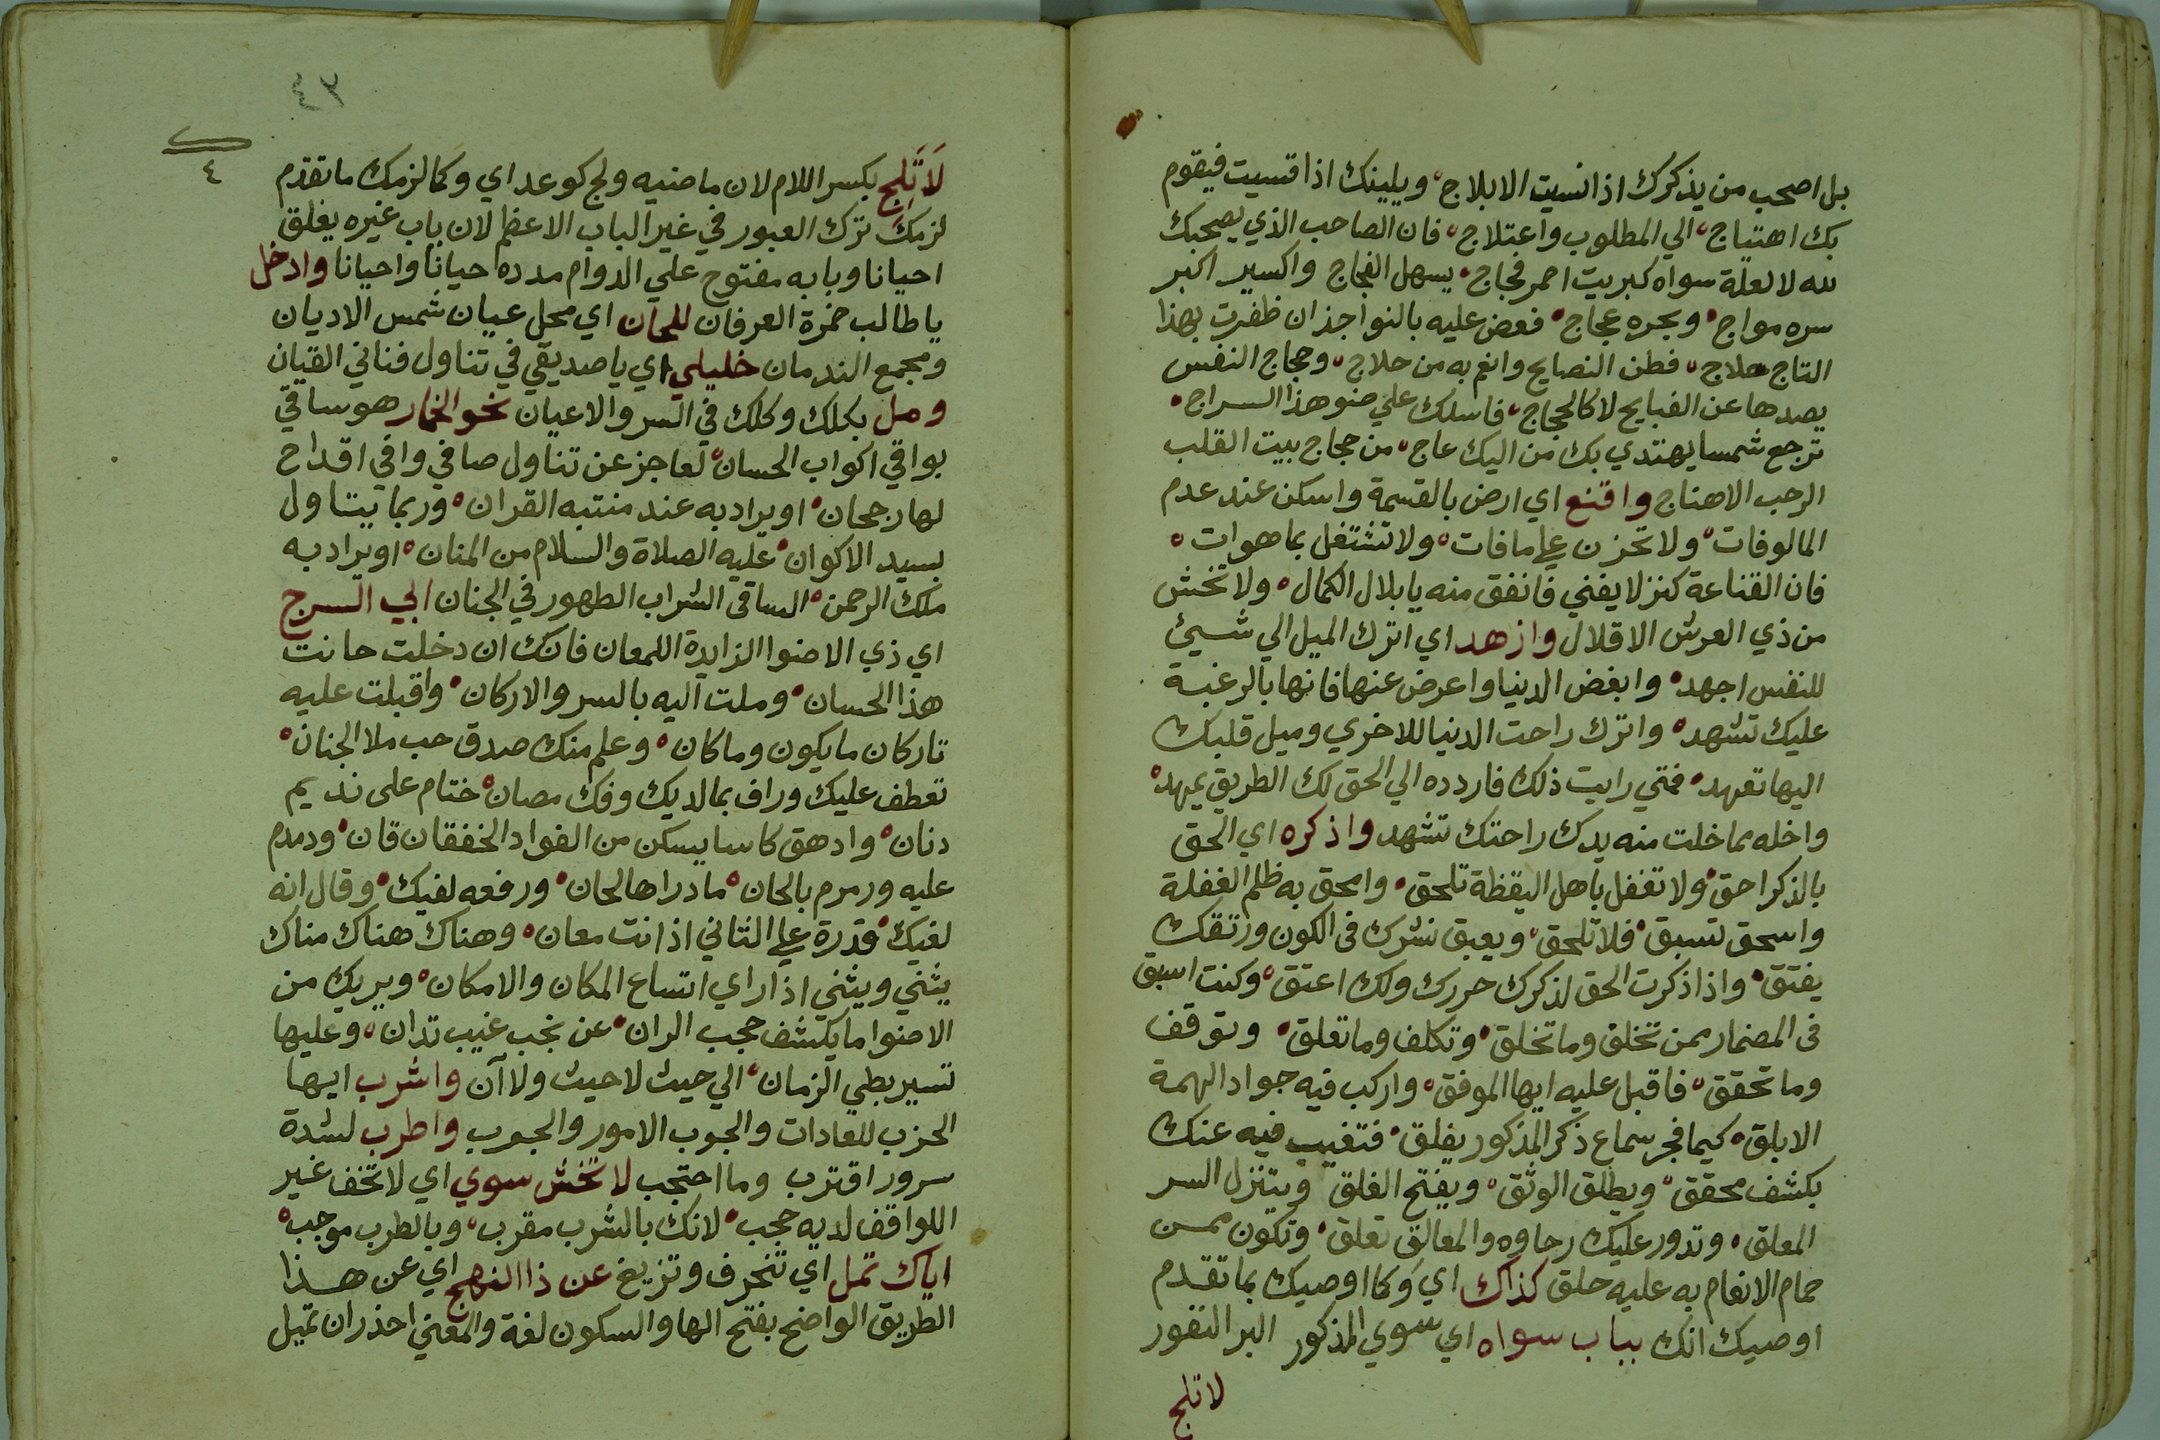 بل اصحب من يذكرك اذا نسيت الابلاج ويلينك اذا قسيت فيقوم
بك اهتياج الي المطلوب واعتلاج فان الصاحب الذي يصحبك
لله لا لعلة سواه كبريت احمر فجاج يسهل الفجاج واكسير اكبر
سره مواج وبحره عجاج فعض عليه بالنواجذ ان ظفرت بهذا
التاج حلاج فطن النصايح وانعم به من حلاج وحجاج النفس
يصدها عن القبايح لا كالحجاج فاسلك علي ضوء هذا السراج
ترجع شمسا يهتدي بك من اليك عاج من حجاج بيت القلب
الرحب الاهناج واقنع اي ارض بالقسمة واسكن عند عدم
المالوفات ولا تحزن علي ما فات ولا تشتغل بما هوات
فان القناعة كنز لا يفني فانفق منه يا بلال الكمال ولا تخش
من ذي العرش الاقلال وازهد اي اترك الميل الي شيئ
للنفس اجهد وابغض الدنيا واعرض عنها فانها بالرغبة
عليك تشهد واترك راحت الدنيا للاخري وميل قلبك
اليها تعهد فمتي رايت ذلك فاردده الي الحق لك الطريق يمهد
واخله مما خلت منه يدك راحتك تشهد واذكره اي الحق
بالذكر احق ولا تغفل باهل اليقظة تلحق وامحق به ظلم الغفلة
واسحق تسبق فلا تلحق ويعبق نشرك في الكون ورتقك
يفتق واذا ذكرت الحق لذكرك حررك ولك اعتق وكنت اسبق
في المضمار ممن تخلق وما تخلق وتكلف وما تعلق وتوقف
وما تحقق فاقبل عليه ايها الموفق واركب فيه جواد الهمة
الابلق كيما فجر سماع ذكر المذكور يفلق فتغيب فيه عنك
بكشف محقق ويطلق الوثق ويفتح الغلق ويتنزل السر
المعلق وتدور عليك رحاوه والمعالق تعلق وتكون ممن
حمام الانعام به عليه حلق كذاك اي وكما اوصيك بما تقدم
اوصيك انك بباب سواه اي سوي المذكور البر الغفور
لا تلج
٤٣
٤
لا تلج بكسر اللام لان ماضيه ولج كوعد اي وكما لزمك ما تقدم
لزمك ترك العبور في غير الباب الاعظم لان باب غيره يغلق
احيانا وبابه مفتوح علي الدوام مدده احيانا واحيانا وادخل
يا طالب خمرة العرفان للحان اي محل عيان شمس الاديان
ومجمع الندمان خليلي اي يا صديقي في تناول قناني القيان
ومل بكلك وكلك في السر والاعيان نحو الخمار هو ساقي
بواقي اكواب الحسان لعاجز عن تناول صافي وافي اقداح
لها رجحان او يراد به عند منتبه القران وربما يتناول
بسيد الاكوان عليه الصلاة والسلام من المنان او يراد به
ملك الرحمن الساقي الشراب الطهور في الجنان ابي السرج
اي ذي الاضوا الزايدة اللمعان فانك ان دخلت حانت
هذا الحسان وملت اليه بالسر والاركان واقبلت عليه
تاركان ما يكون وما كان وعلم منك صدق حب ملا الجنان
تعطف عليك وراف بما لديك وفك مصان ختام علي نديم
دنان وادهق كاسا يسكن من الفواد الخفقان قان ودمدم
عليه وزمزم بالحان ما دراها لحان ورفعه لفيك وقال انه
لفيك قدرة علي التاني اذ انت معان وهناك هناك مناك
يثني ويثني اذا راي اتساع المكان والامكان ويريك من
الاضوا ما يكشف حجب الران عن نجب غيب تدان وعليها
تسير بطي الزمان الي حيث لا حيث ولا آن واشرب ايها
الحزب للعادات والجوب الامور والجوب واطرب لشدة
سرور اقترب وما احتجب لا تخش سوي اي لا تخف غير
اللواقف لديه حجب لانك بالشرب مقرب وبالطرب موجب
اياك تمل اي تنحرف وتزيغ عن ذا النهج اي عن هذا
الطريق الواضح بفتح الها والسكون لغة والمعني احذر ان تميل